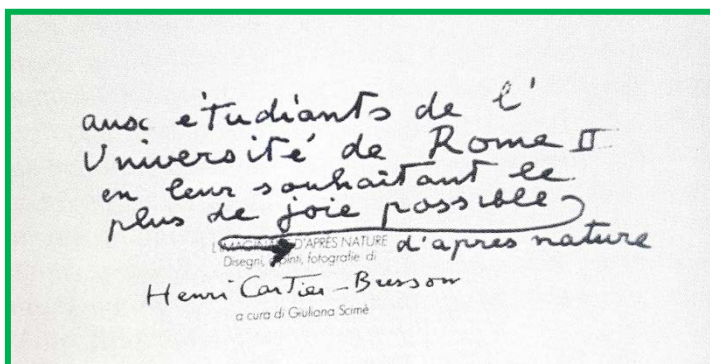 aux étudiants de l'
Université de Rome II
en leur souhaitant le
plus de joie possible
L'IMAGINAIRE D'APRÈS NATURE d'après nature
Disegni, dipinti, fotografie di
Henri Cartier-Bresson
a cura di Giuliana Scimé